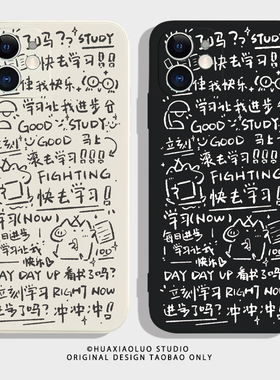 了吗?? STUDY
快去学习!!!
使我快乐
学习让我进步
GOOD STUDY
立刻 GOOD 马上
滚去学习!!!
FIGHTING
快去学习!
学习(NOW)
每日进步
学习让我
快乐
100
DAY DAY UP 看书了吗?
立刻学习 RIGHT NOW
进步了吗? 冲冲冲!!
了吗?? STUDY
快去学习!!!
使我快乐
学习让我进步
GOOD STUDY
立刻 GOOD 马上
滚去学习!!!
FIGHTING
快去学习!
学习(NOW)
每日进步
学习让我
快乐
100
DAY DAY UP 看书了吗?
立刻学习 RIGHT NOW
进步了吗? 冲冲冲!!
©HUAXIAOLUO STUDIO
ORIGINAL DESIGN TAOBAO ONLY